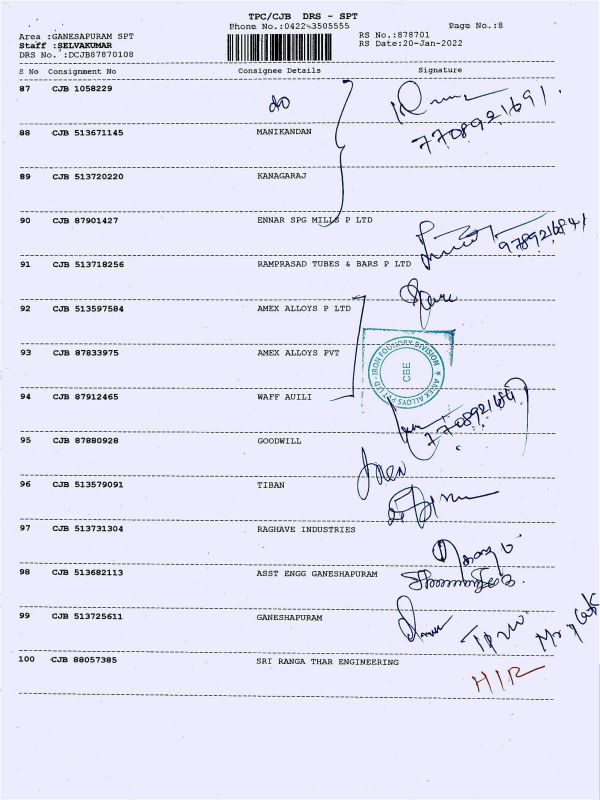 TPC/CJB DRS - SPT
Phone No.:0422-3505555 Page No.:8
Area :GANESAPURAM SPT RS No.:878701
Staff :SELVAKUMAR RS Date:20-Jan-2022
DRS No. :DCJB87870108
S No Consignment No Consignee Details Signature
87 CJB 1058229 do
7708921691.
88 CJB 513671145 MANIKANDAN
89 CJB 513720220 KANAGARAJ
90 CJB 87901427 ENNAR SPG MILLS P LTD
9789216841
91 CJB 513718256 RAMPRASAD TUBES & BARS P LTD
92 CJB 513597584 AMEX ALLOYS P LTD
93 CJB 87833975 AMEX ALLOYS PVT
AMEX ALLOYS PVT LTD - IRON FOUNDRY DIVISION ★
CBE
94 CJB 87912465 WAFF AUILI
95 CJB 87880928 GOODWILL
96 CJB 513579091 TIBAN
97 CJB 513731304 RAGHAVE INDUSTRIES
98 CJB 513682113 ASST ENGG GANESHAPURAM
99 CJB 513725611 GANESHAPURAM
100 CJB 88057385 SRI RANGA THAR ENGINEERING
HIR